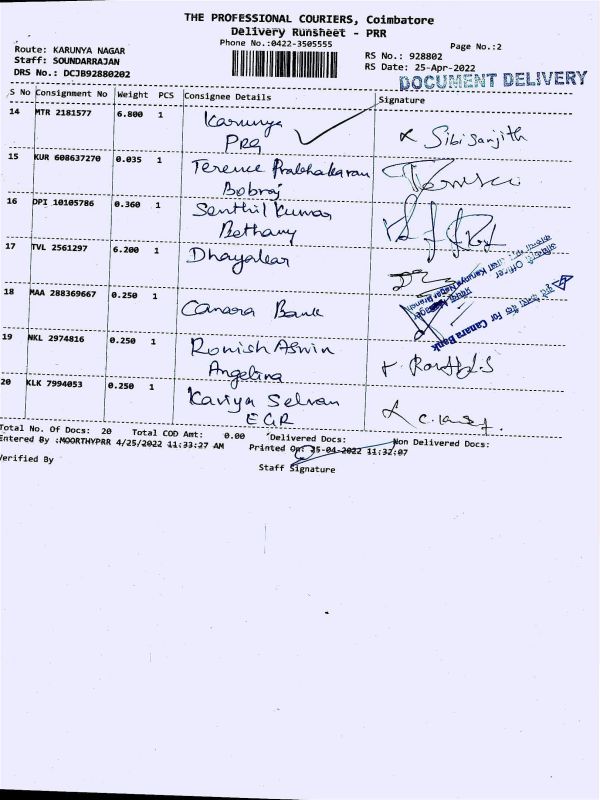 THE PROFESSIONAL COURIERS, Coimbatore
Delivery Runsheet - PRR
Phone No.:0422-3505555
Page No.:2
Route: KARUNYA NAGAR
Staff: SOUNDARRAJAN
DRS No.: DCJB92880202
RS No.: 928802
RS Date: 25-Apr-2022
DOCUMENT DELIVERY
S No Consignment No Weight PCS Consignee Details Signature
14 MTR 2181577 6.800 1 Karunya
PRG
Sibi Sanjith
15 KUR 608637270 0.035 1 Terence Prabhakaran
Bobraj
16 DPI 10105786 0.360 1 Senthil Kumar
Bethany
17 TVL 2561297 6.200 1 Dhayalear
18 MAA 288369667 0.250 1 Canara Bank
Officer
Karunya Nagar Branch
For Canara Bank
19 NKL 2974816 0.250 1 Ronish Aswin
Angelina
20 KLK 7994053 0.250 1 Kaviya Selvan
EGR
Total No. Of Docs: 20 Total COD Amt: 0.00 Delivered Docs: Non Delivered Docs:
Entered By :MOORTHYPRR 4/25/2022 11:33:27 AM Printed On: 25-04-2022 11:32:07
Verified By
Staff Signature